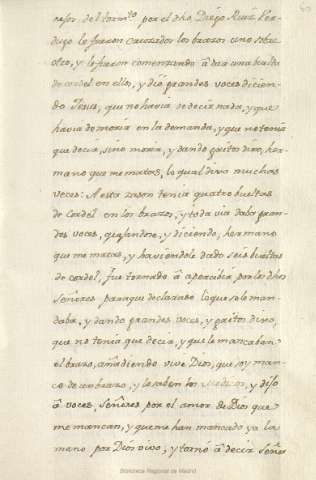 nesos del torm.to por el dho Diego Ruiz Ver-
dugo le fueron cruzados los brazos uno sobre
otro, y le fueron comenzando à dar una buelta
de cordel en ellos, y dio grandes voces dicien-
do Jesus, que no havia de decir nada, y que
havia de morir en la demanda, y que no tenia
que decir, sino moria, y dando gritos dixo, her-
mano que me matas, lo qual dixo muchas
veces: A esta sazon tenia quatro bueltas
de cordel en los brazos, y todavia daba gran-
des voces, quejandose, y diciendo, hermano
que me matas, y haviendole dado seis bueltas
de cordel, fue tornado à apercibir por los dhos
Señores para que declarase lo que se le man-
daba, y dando grandes voces, y gritos dixo,
que no tenia que decir, y que le mancaban
el brazo, añadiendo vive Dios, que soy man-
co de un brazo, y lo saben los Medicos, y dijo
à voces, Señores por el amor de Dios que
me mancan, y que me han mancado ya la
mano por Dios vivo, y tornó à decir Señor
Biblioteca Regional de Madrid